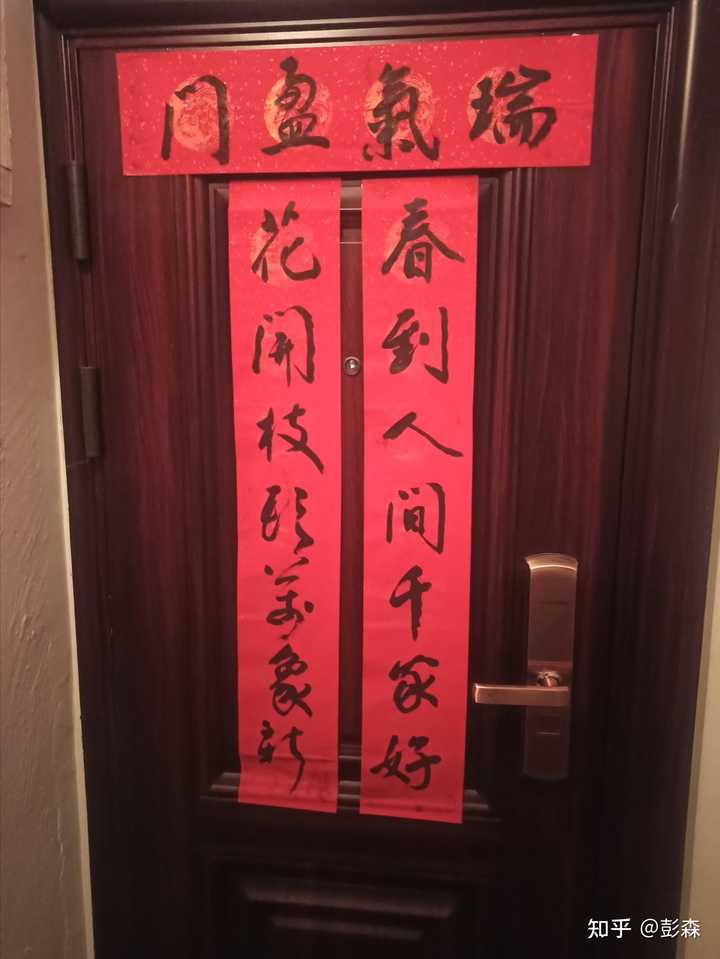 瑞氣盈门
春到人間千家好
花開枝頭萬象新
知乎 @彭森